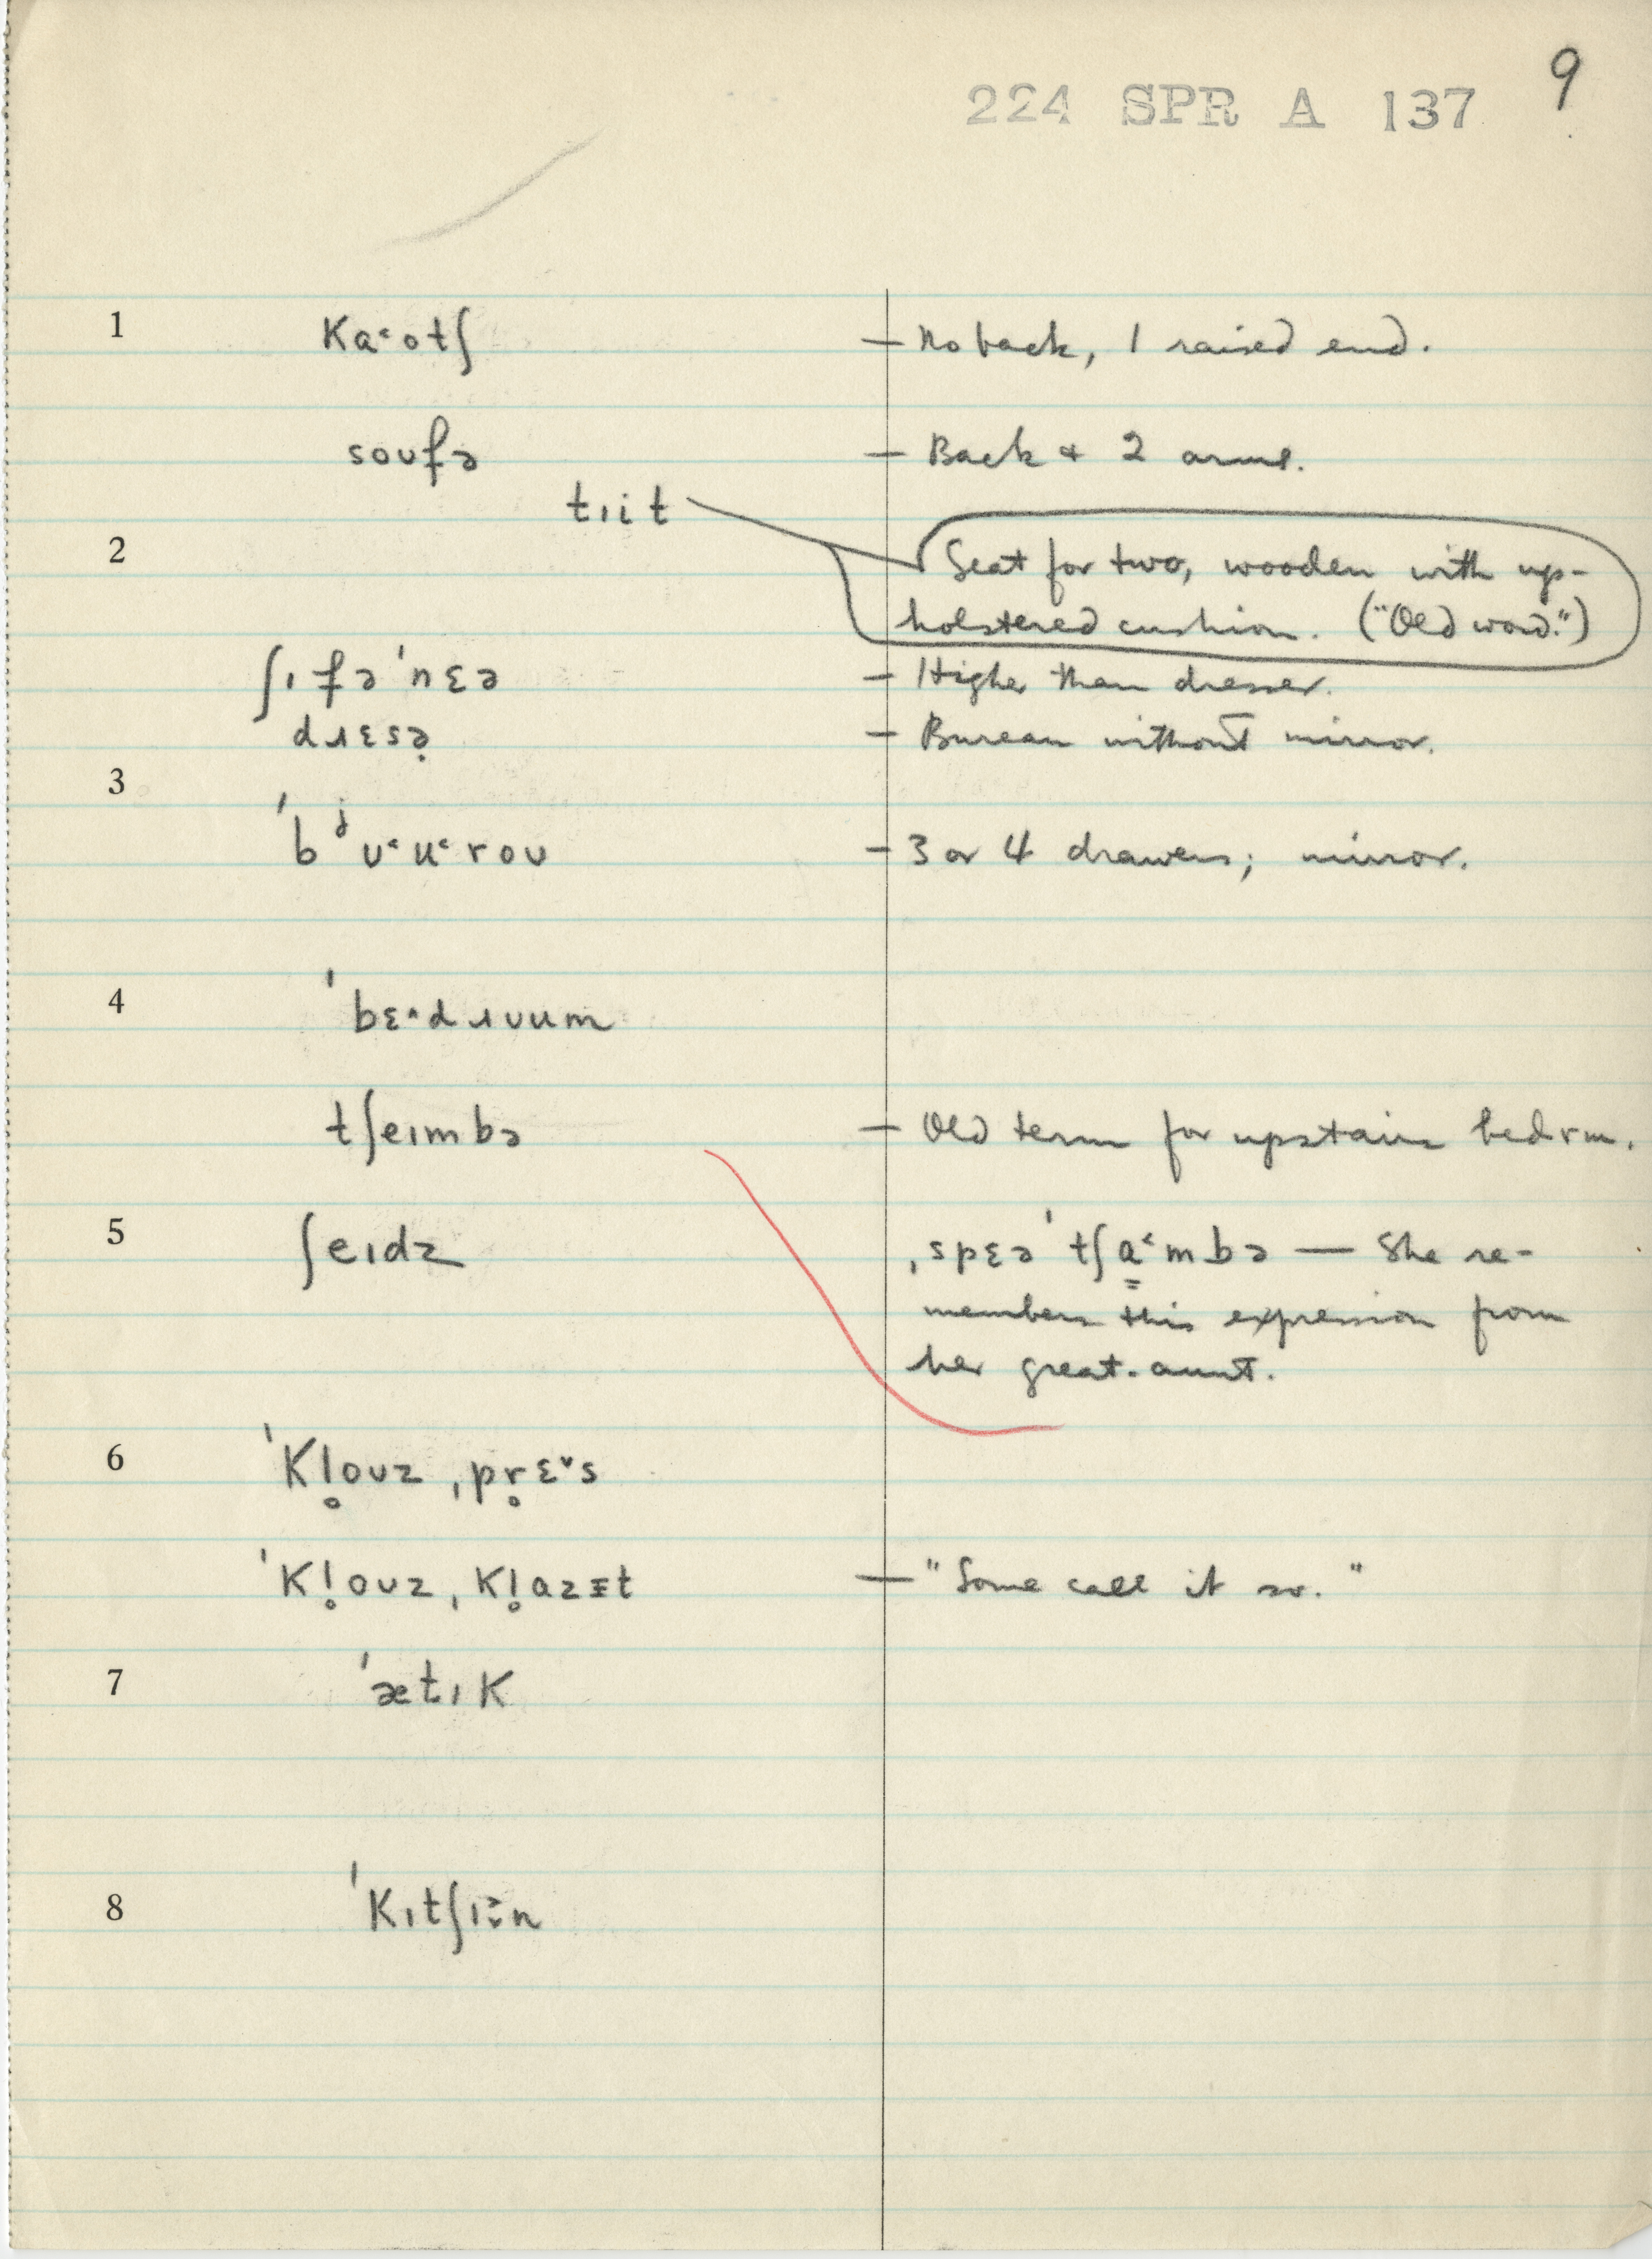 9
224 SPR A 137
1 Ka˂otʃ — No back, 1 raised end.
soʊfə — Back & 2 arms.
tɪit
2 Seat for two, wooden with up-
holstered cushion. ("Old word.")
ʃɪfəˈnɛə — Higher than dresser.
dɹɛsə̣ — Bureau without mirror.
3
ˈbʲʊ˂u˂roʊ — 3 or 4 drawers; mirror.
4 ˈbɛ˄dɹʊum
tʃeɪmbə — Old term for upstairs bedrm.
5 ʃeɪdz ˌspɛəˈtʃa̳˂mbə — She re-
members this expression from
her great-aunt.
6 ˈKl̥oʊzˌpr̥ɛ˅s
ˈKl̥oʊzˌKl̥azɪ̵t — "Some call it so."
7 ˈætɪK
8 ˈKɪtʃɪn